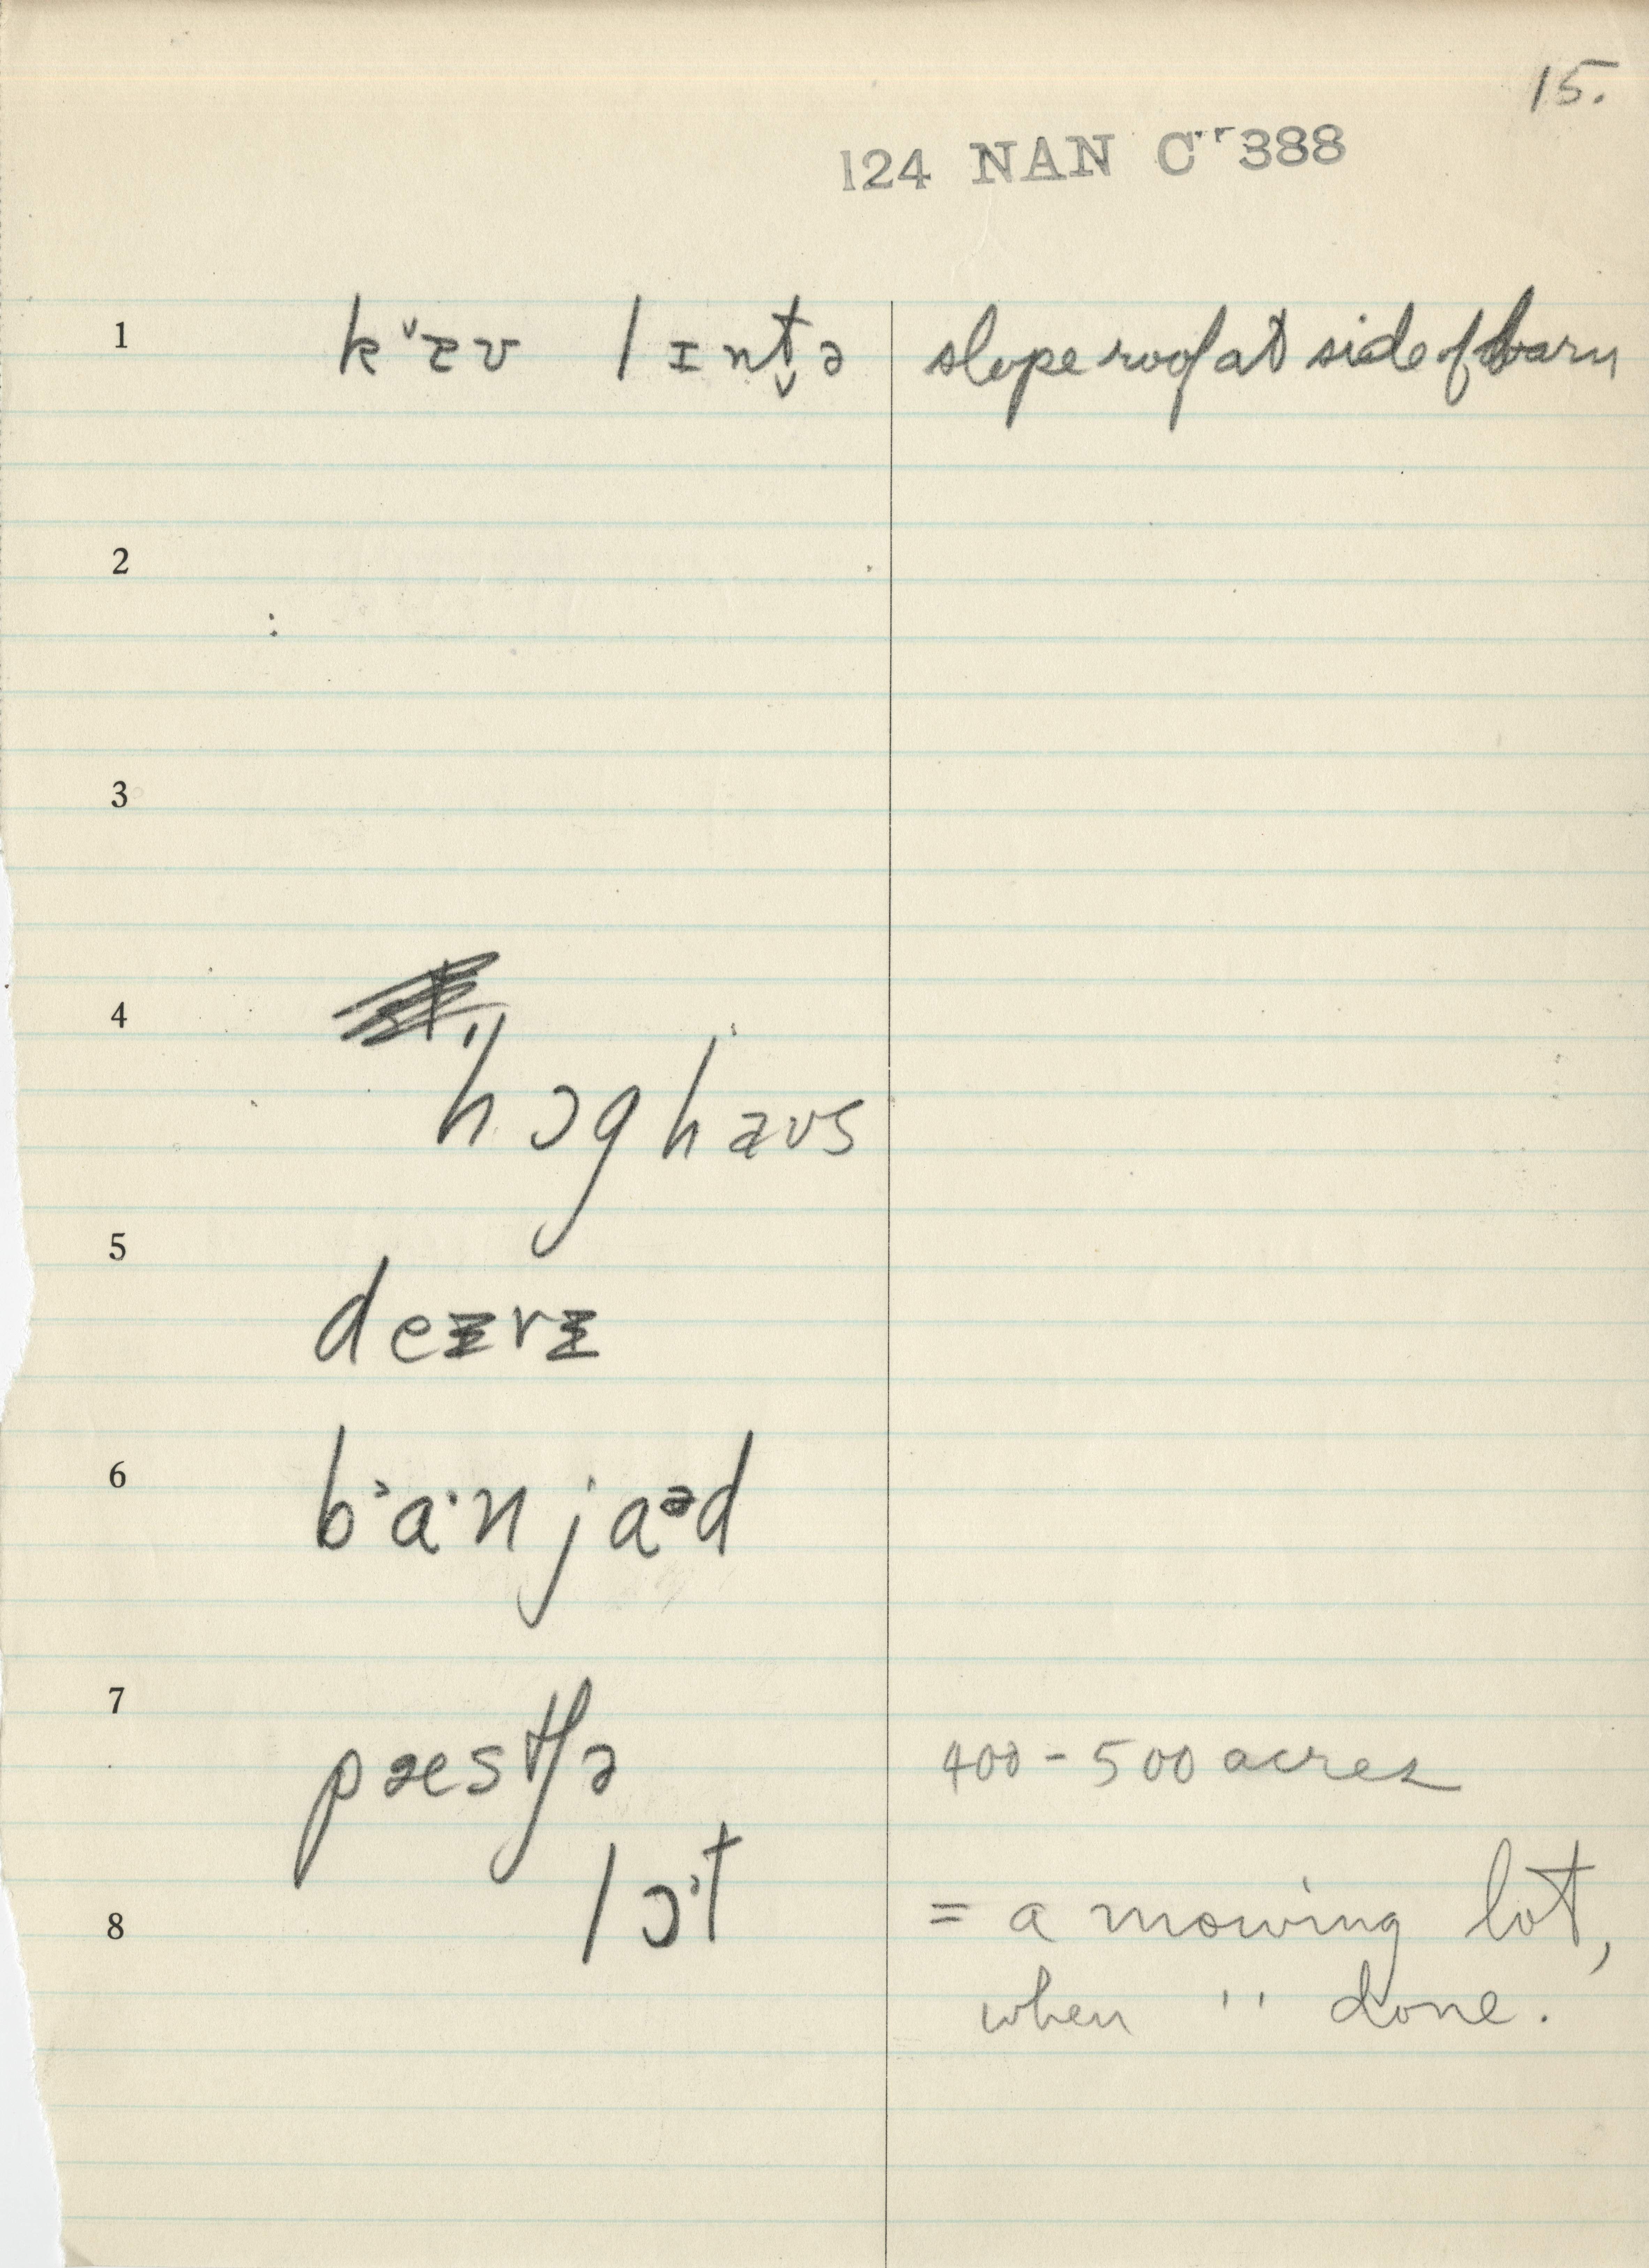 15.
124 NAN C 388
1 kˇɛʊ lɪnt̬ə slope roof at side of barn
2
3
4
hɔghaʊs
5
deɪrɪ
6 b˃a·n jaᵊd
7
pæstʃə 400 - 500 acres
8 lɔ˒t = a mowing lot,
when '' done.